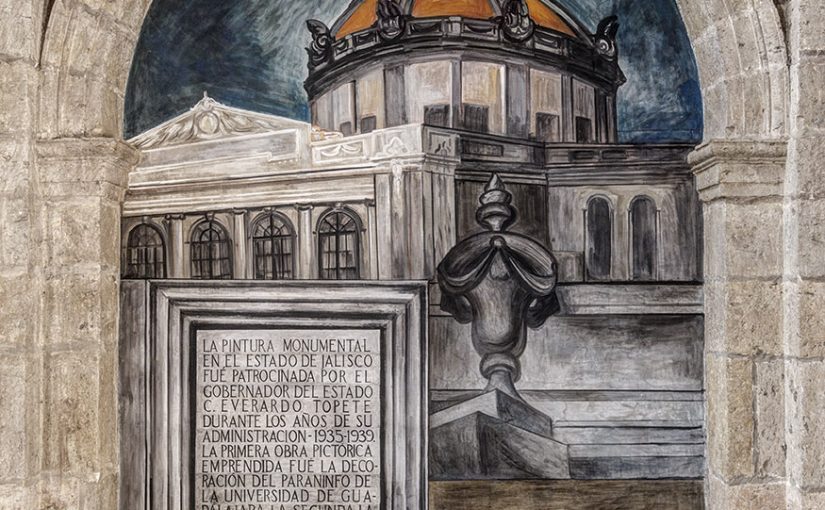 LA PINTURA MONUMENTAL
EN EL ESTADO DE JALISCO
FUE PATROCINADA POR EL
GOBERNADOR DEL ESTADO
C. EVERARDO TOPETE
DURANTE LOS AÑOS DE SU
ADMINISTRACION-1935-1939.
LA PRIMERA OBRA PICTÓRICA
EMPRENDIDA FUÉ LA DECO-
RACIÓN DEL PARANINFO DE
LA UNIVERSIDAD DE GUA-
DALAJARA LA SEGUNDA LA